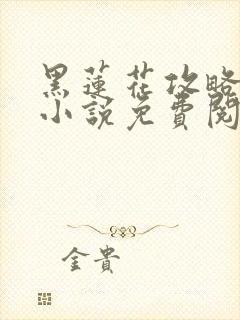 黑蓮花攻略
小說免費閱
金貴